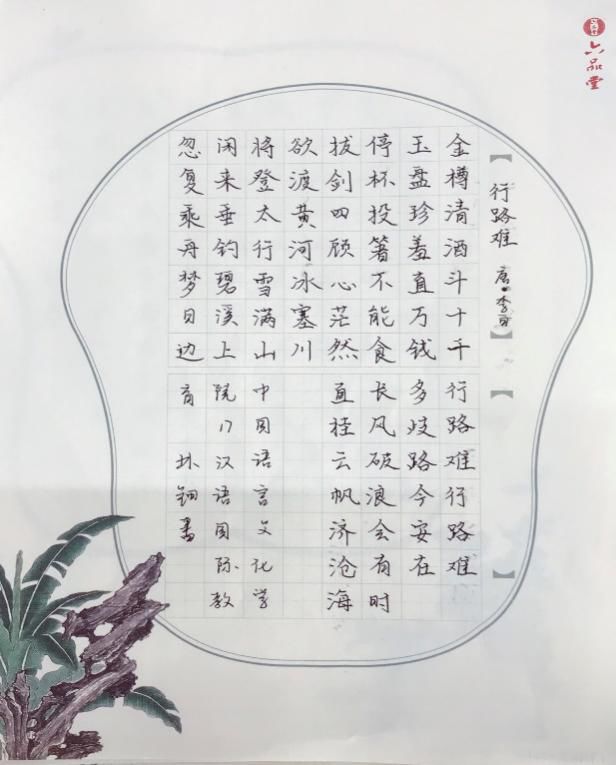 六品堂
【行路难 唐·李白】
金樽清酒斗十千
玉盘珍羞直万钱
停杯投箸不能食
拔剑四顾心茫然
欲渡黄河冰塞川
将登太行雪满山
闲来垂钓碧溪上
忽复乘舟梦日边
【
行路难行路难
】
多歧路今安在
长风破浪会有时
直挂云帆济沧海
中国语言文化学
院17汉语国际教
育 书